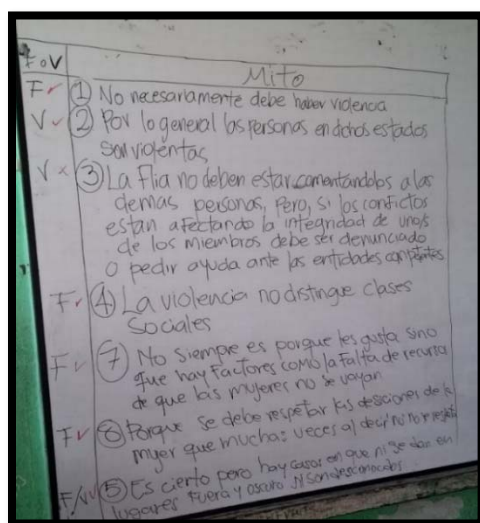 F o V
Mito
F ✓ ① No necesariamente debe haber violencia
V ✓ ② Por lo general las personas en dichos estados
son violentas
V × ③ La Flia no deben estar comentandolos a las
demas personas, Pero, si los conflictos
estan afectando la integridad de unos
de los miembros debe ser denunciado
o pedir ayuda ante las entidades competentes
F ✓ ④ La violencia no distingue clases
sociales
F ✓ ⑦ No siempre es porque les gusta sino
que hay Factores como la Falta de
de que las mujeres no se vayan
F ✓ ⑧ Porque se debe respetar las de la
mujer que muchas veces al decir no no
F/V ✓ ⑤ Es cierto pero hay casos en que ni se dan en
lugares Fuera y oscuro Ni son desconocidos